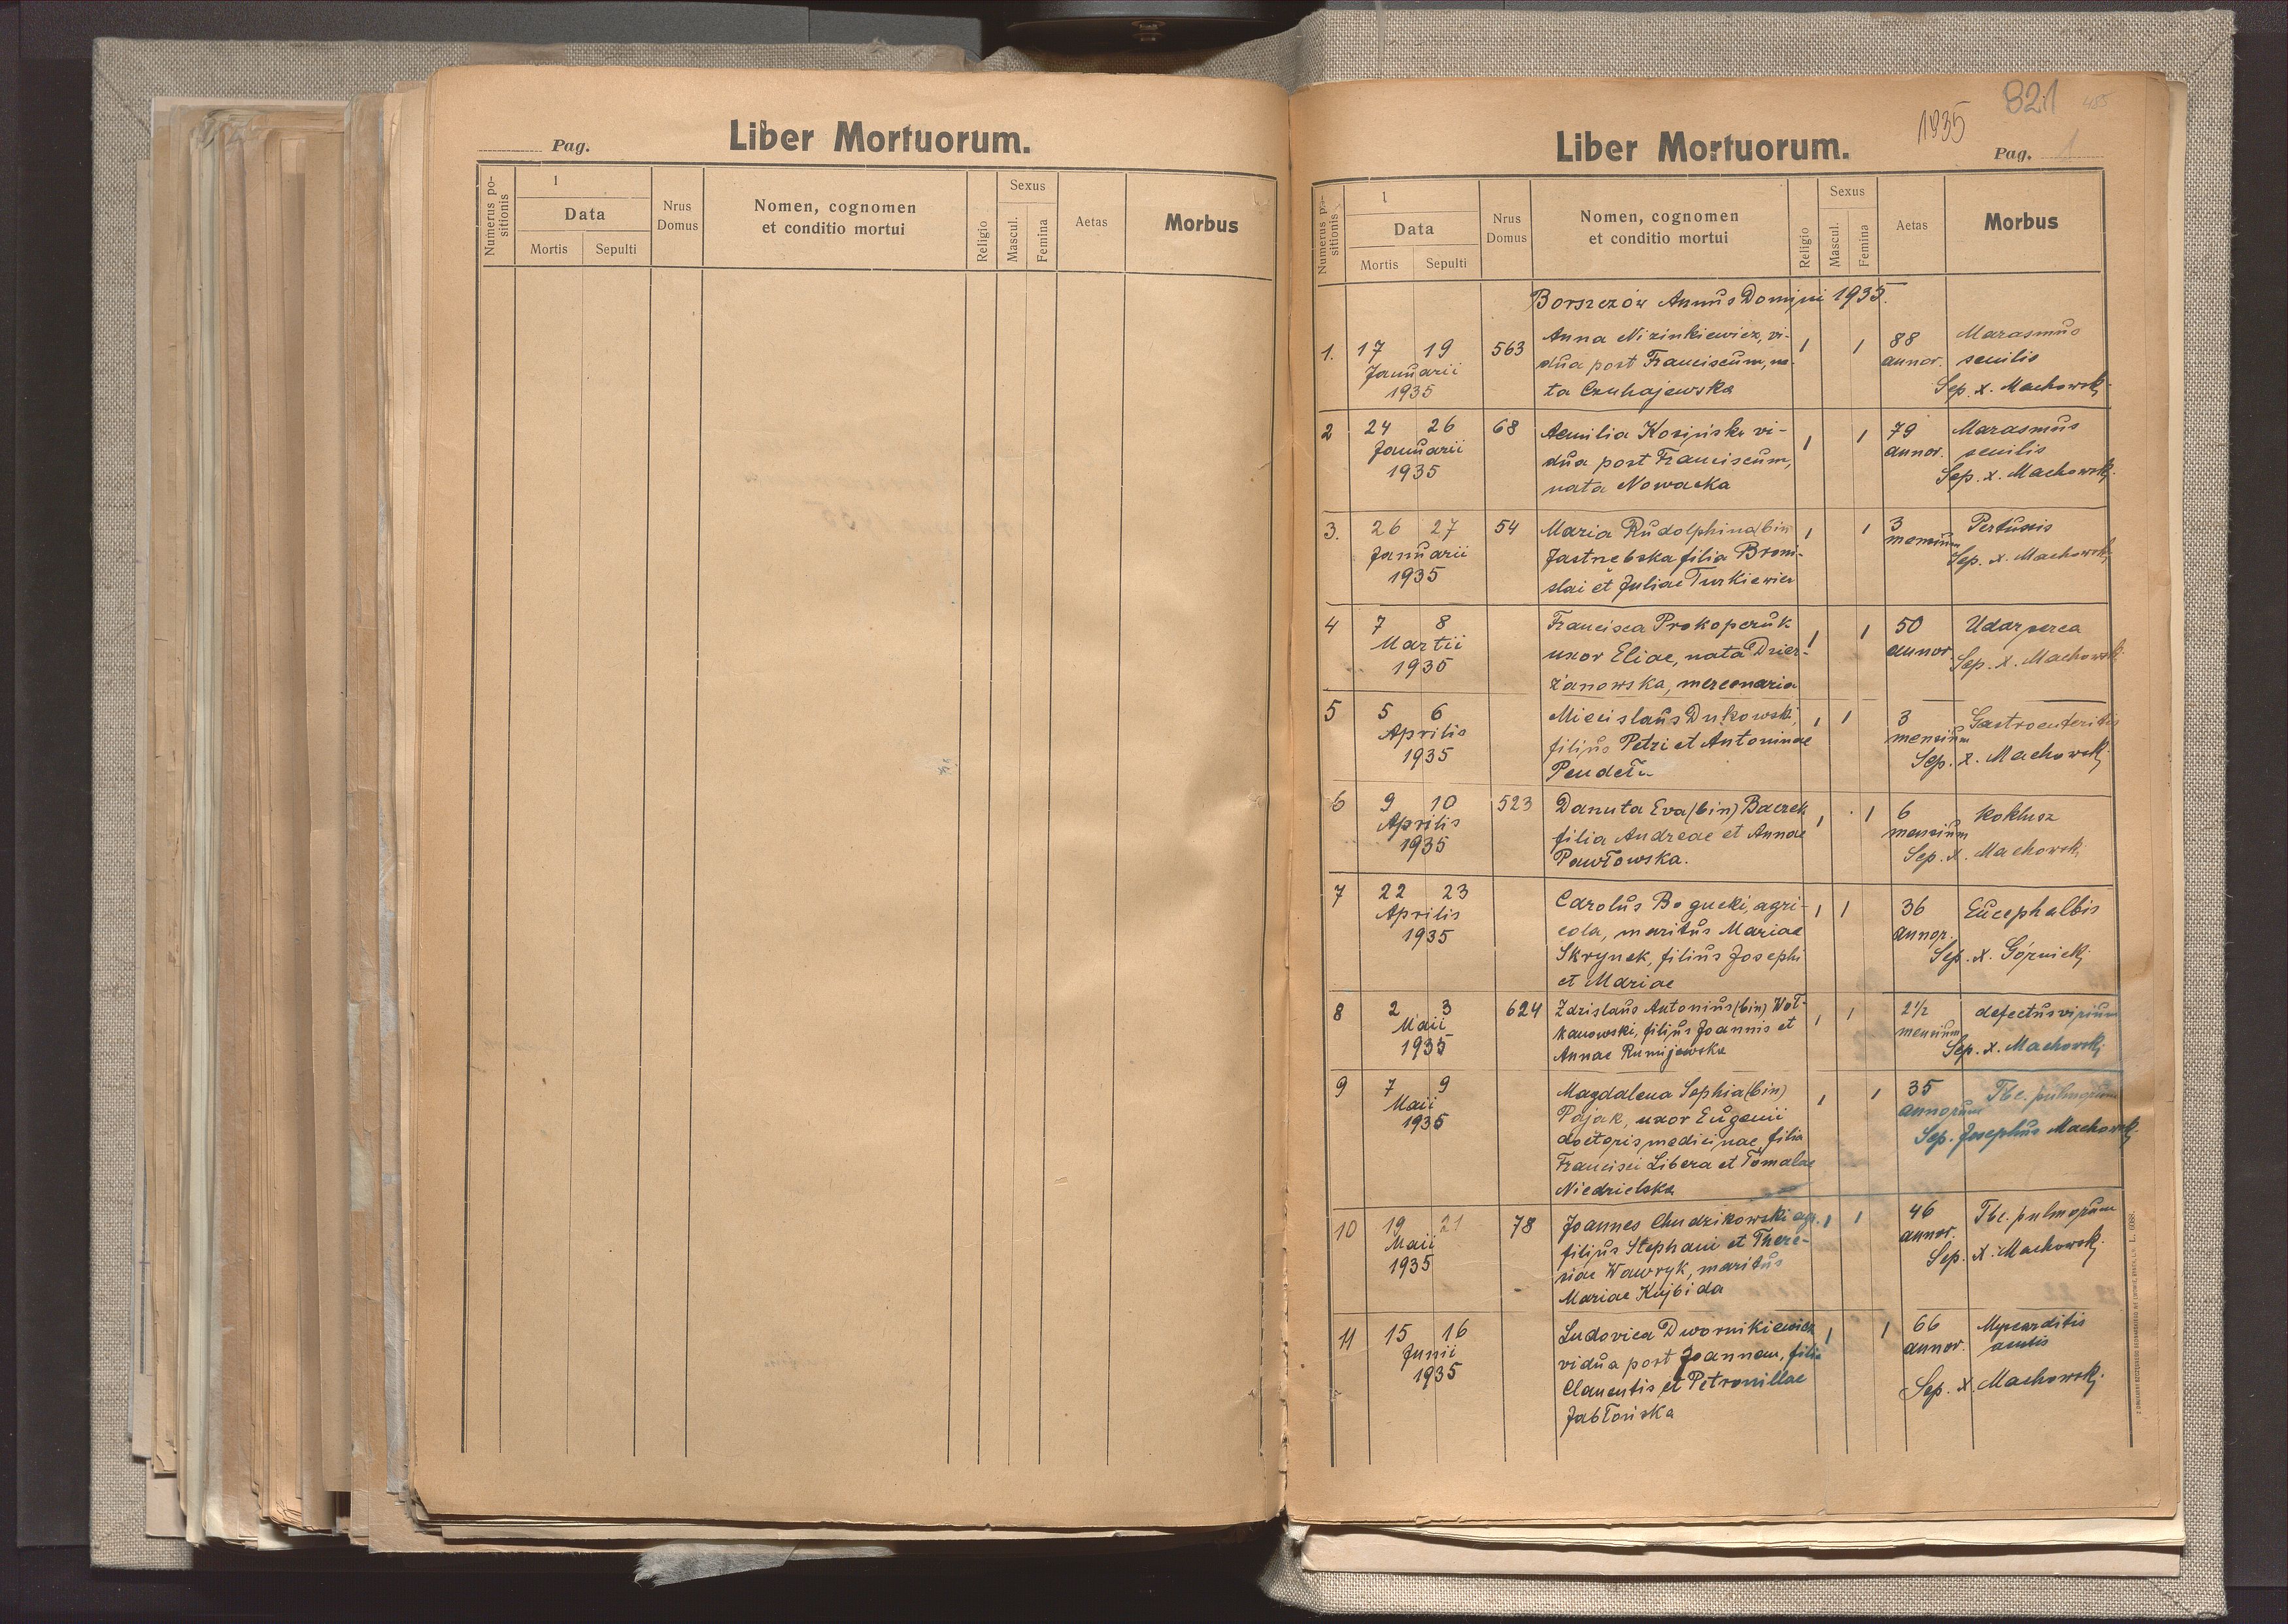 Pag.
Liber Mortuorum.
Numerus po-
sitionis
1
Data
Mortis
Sepulti
Nrus
Domus
Nomen, cognomen
et conditio mortui
Religio
Sexus
Mascul.
Femina
Aetas
Morbus
1935
821
485
Liber Mortuorum.
Pag. 1
Numerus po-
sitionis
1
Data
Mortis
Sepulti
Nrus
Domus
Nomen, cognomen
et conditio mortui
Religio
Sexus
Mascul.
Femina
Aetas
Morbus
Borszczów Annus Domini 1935.
1. 17 19 563 Anna Nizinkiewicz, vi- 1 1 88 Marasmus
Januarii dua post Franciscum, na- annor. senilis
1935 ta Czuhajewska Sep. X. Machowski
2 24 26 68 Aemilia Kosińska vi- 1 1 79 Marasmus
Januarii dua post Franciscum, annor. senilis
1935 nata Nowacka Sep. X. Machowski
3. 26 27 54 Maria Rudolphina (bin) 1 1 3 Pertussis
Januarii Jastrzebska filia Broni- mensium Sep. X. Machowski
1935 slai et Juliae Turkiewicz
4 7 8 Francisca Prokopczuk 1 1 50 Udar serca
Martii uxor Eliae, nata Dzier- annor Sep. X. Machowski
1935 żanowska, mercenaria
5 5 6 Miecislaus Dukowski, 1 1 3 Gastroenteritis
Aprilis filius Petri et Antoninae mensium
1935 Sep. X. Machowski
6 9 10 523 Danuta Eva (bin) Baczek 1 1 6 Koklusz
Aprilis filia Andreae et Annae mensium
1935 Pawłowska. Sep. X. Machowski
7 22 23 Carolus Bogucki, agri- 1 1 36 Encephalitis
Aprilis cola, maritus Mariae annor.
1935 Skrynek, filius Josephi Sep. X. Górnicki
et Mariae
8 2 3 624 Zdzislaus Antonius (bin) Woł- 1 1 2 1/2 defectus virium
Maii kanowski, filius Joannis et mensium
1935 Annae Rumijowska Sep. X. Machowski
9 7 9 Magdalena Sophia (bin) 1 1 35 Tbc. pulmonum
Maii Pająk, uxor Eugenii annorum
1935 doctoris medicinae, filia Sep. Josephus Machowski
Francisci Libera et
Niedzielska
10 19 21 78 Joannes Chudzikowski agr. 1 1 46 Tbc. pulmonum
Maii filius Stephani et There- annor.
1935 siae Wawryk, maritus Sep. X. Machowski
Mariae Kujbida
11 15 16 Ludovica Dwornikiewicz 1 1 66 Myocarditis
Junii vidua post Joannem, filia annor.
1935 Clementis et Petronillae Sep. X. Machowski
Jabłońska